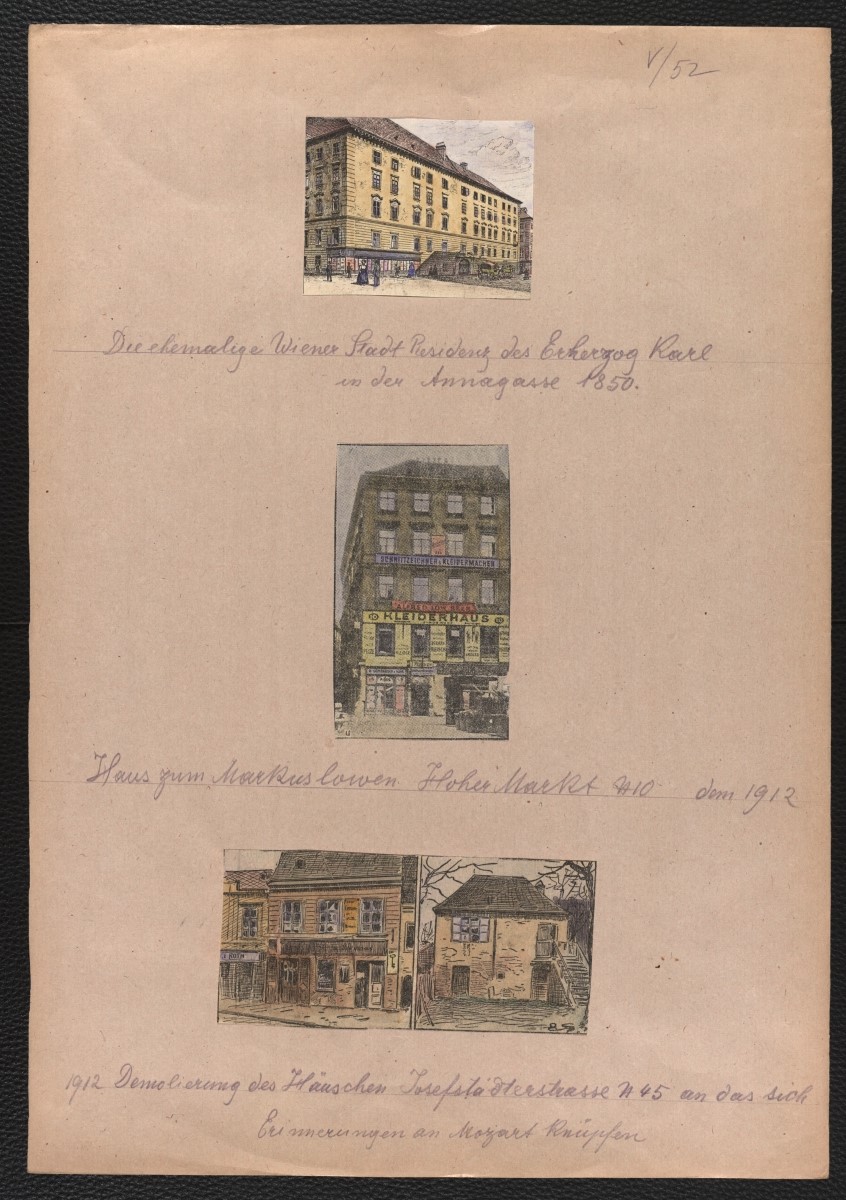 V/52
Die ehemalige Wiener Stadt Residenz des Erherzog Karl
in der Annagasse 1850.
SCHNITTZEICHNEN u. KLEIDERMACHEN
KLEIDERHAUS
Haus zum Markuslowen Hoher Markt N10 dem 1912
ROTH
1912 Demolierung des Häuschen Josefstädterstrasse N 45 an das sich
Erinnerungen an Mozart Knüpfen